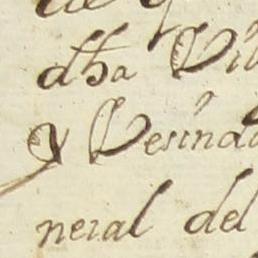 dha Vil
y Vesinda
neral del